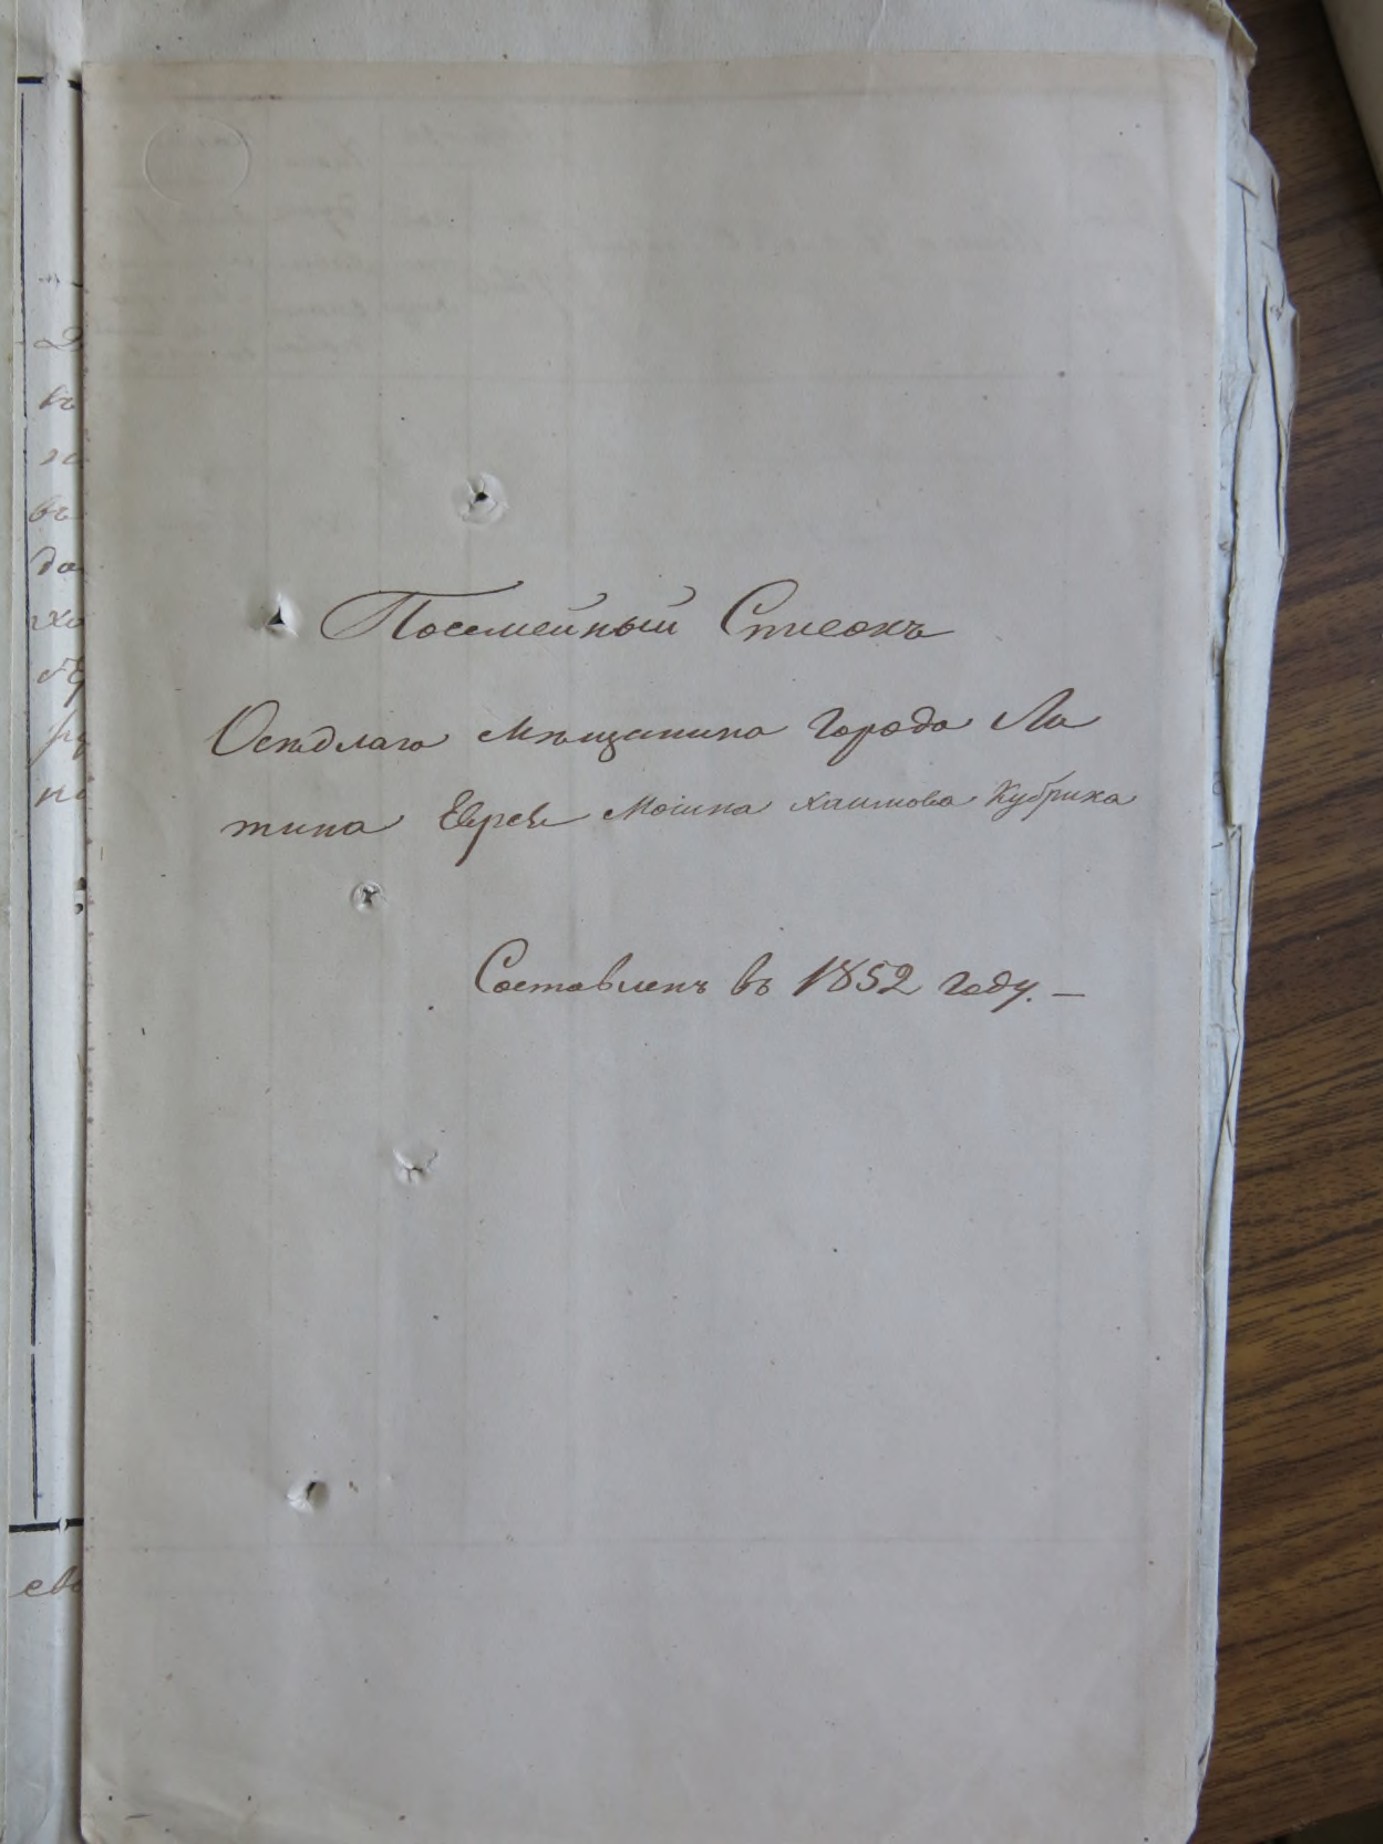 Посемейный Списокъ
Осѣдлаго мѣщанина города Ли
тина Еврея Мошка Хаимова Кубрика
Составленъ въ 1852 году. —